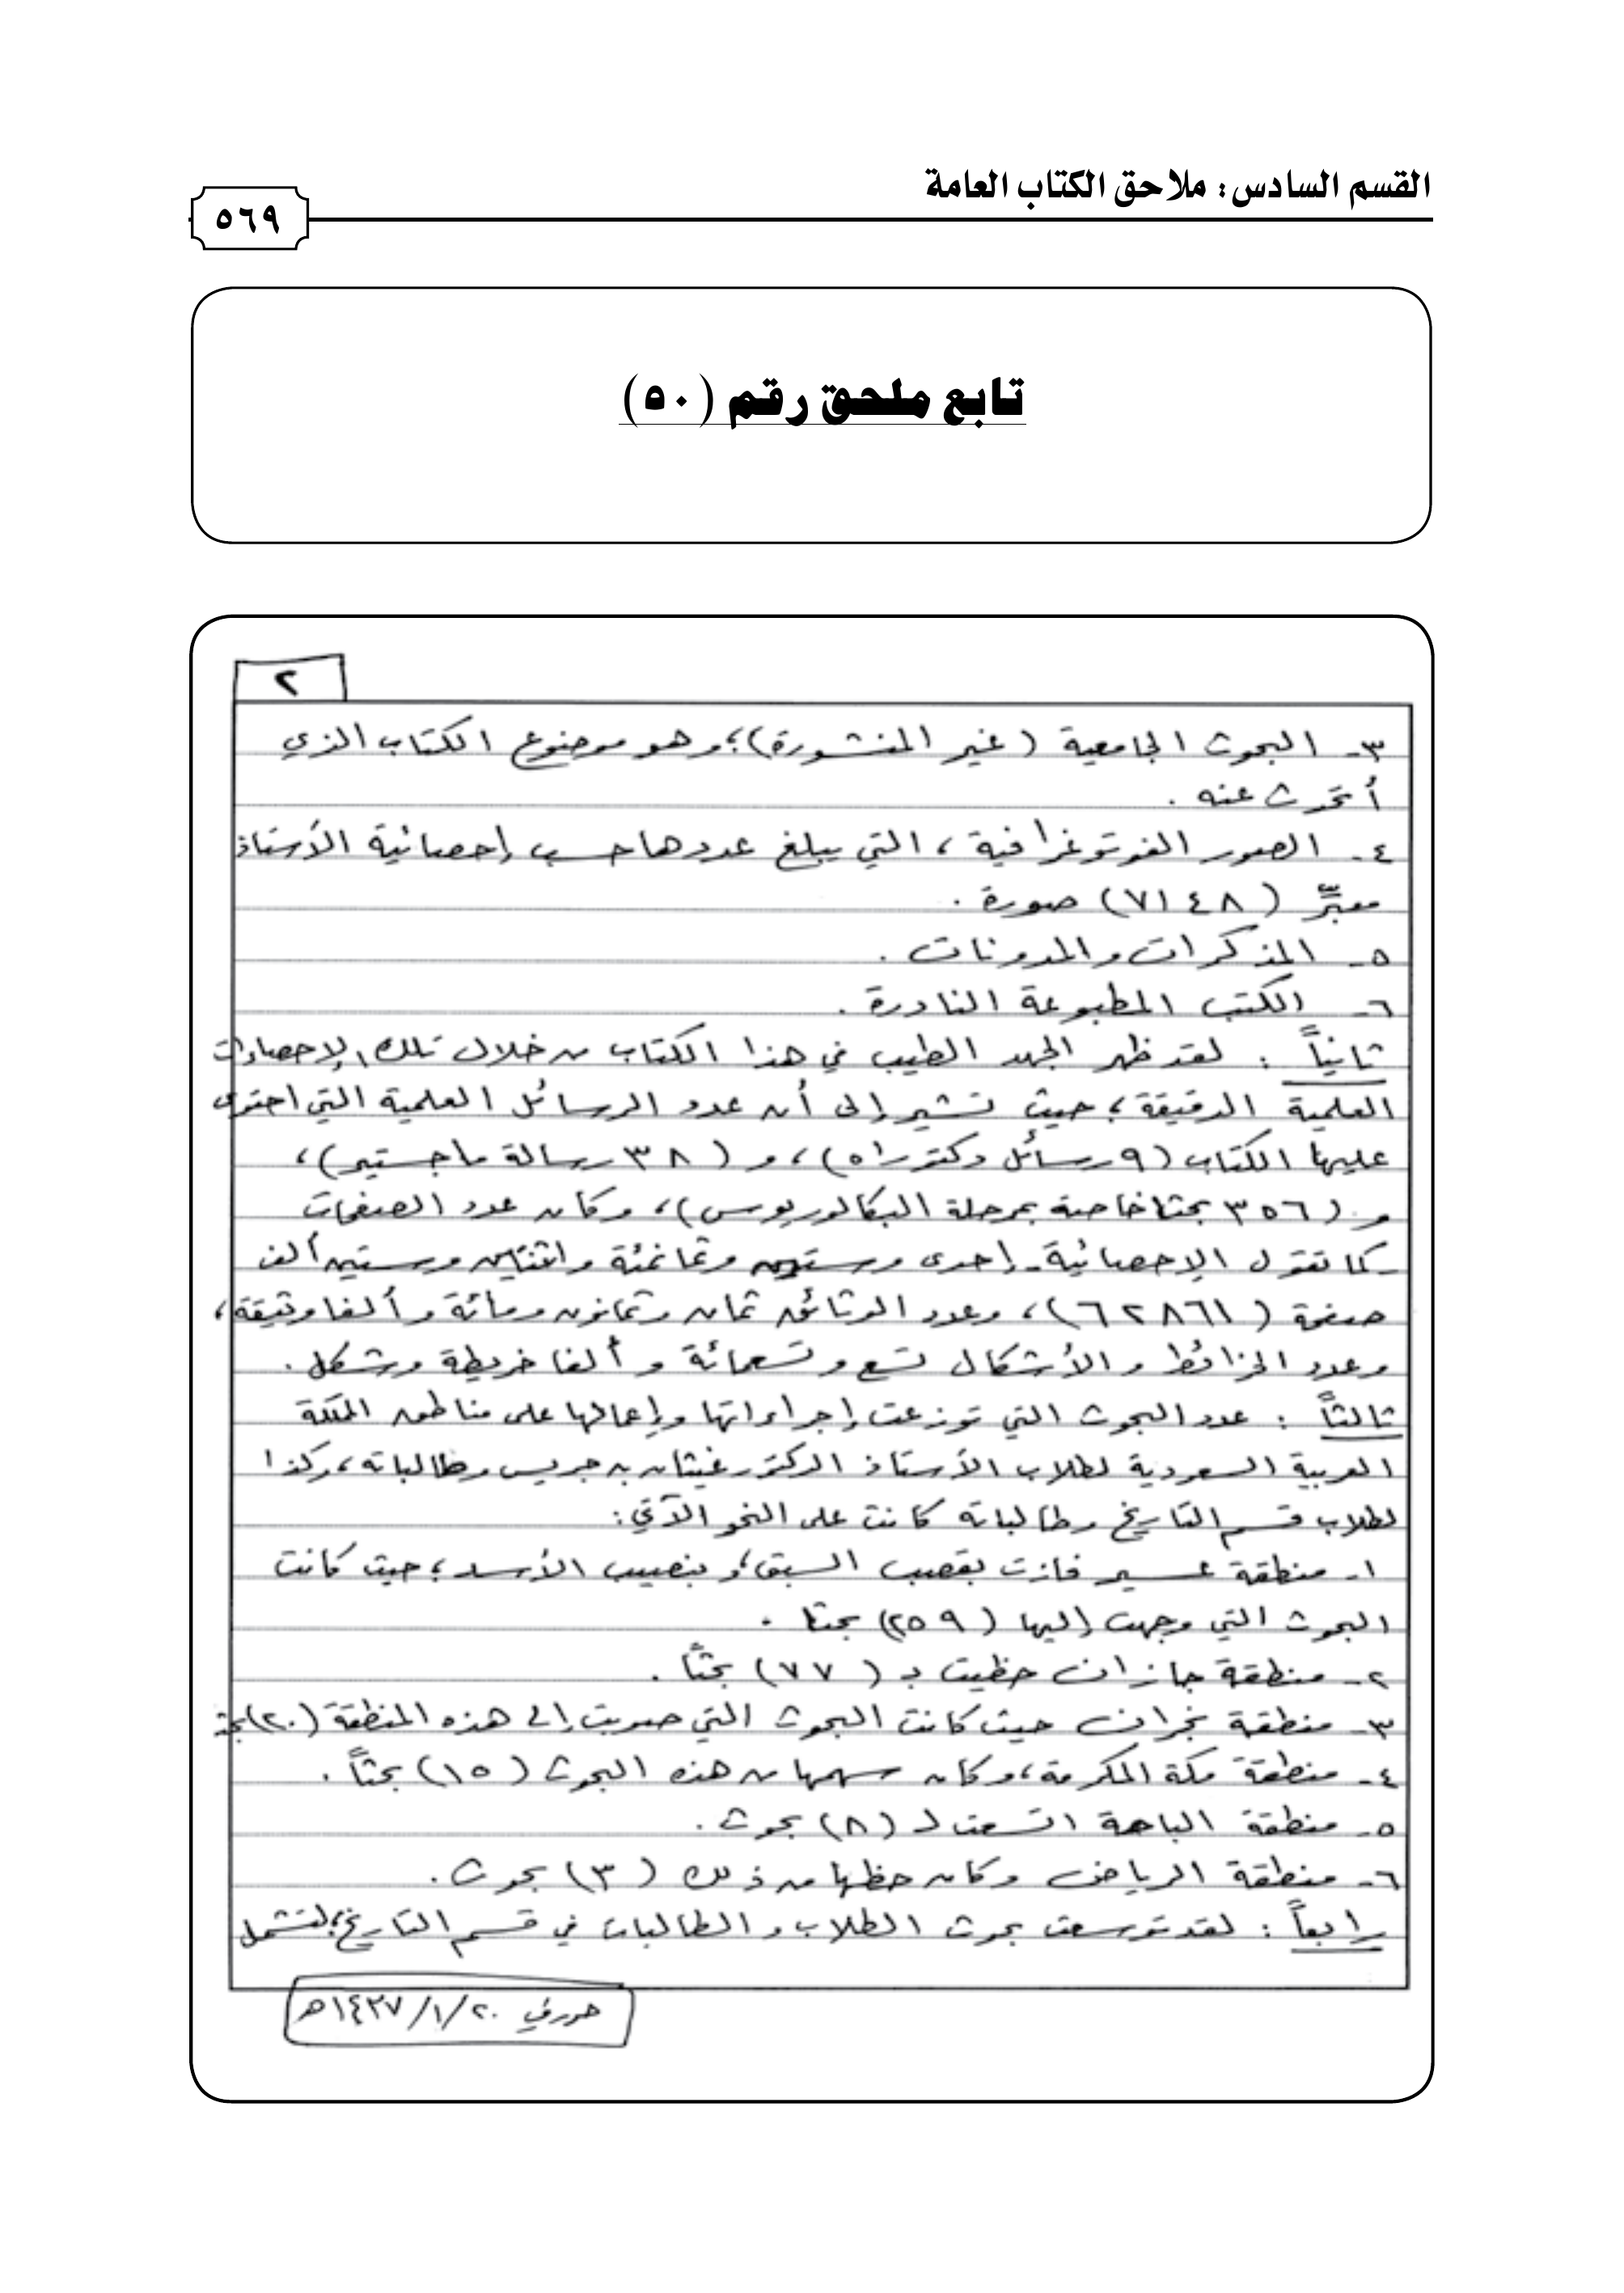 القسم السادس: ملاحق الكتاب العامة
٥٦٩
تابع ملحق رقم (٥٠)
٢
٣- البحوث الجامعية (غير المنشورة)؛ وهو موضوع الكتاب الذي
أتحدث عنه .
٤- الصور الفوتوغرافية، التي يبلغ عددها حسب إحصائية الأستاذ
معبِّر (٧١٤٨) صورة .
٥- المذكرات والمدونات .
٦- الكتب المطبوعة النادرة .
ثانياً : لقد ظهر الجهد الطيب في هذا الكتاب من خلال تلك الإحصاءات
العلمية الدقيقة؛ حيث تشير إلى أن عدد الرسائل العلمية التي احتوى
عليها الكتاب (٩ رسائل دكتوراه)، و (٣٨ رسالة ماجستير)،
و (٣٥٦ بحثا خاصة بمرحلة البكالوريوس)، وكان عدد الصفحات
-كما تقول الإحصائية- إحدى وستين وثمانمئة واثنتين وستين ألف
صفحة (٦٢٨٦١)، وعدد الوثائق ثمان وثمانون ومائة وألفا وثيقة،
وعدد الخرائط والأشكال تسع وتسعمائة وألفا خريطة وشكل .
ثالثاً : عدد البحوث التي توزعت إجراءاتها وإعمالها على مناطق المملكة
العربية السعودية لطلاب الأستاذ الدكتور غيثان بن جريس وطالباته، وكذا
لطلاب قسم التاريخ وطالباته كانت على النحو الآتي:
١- منطقة عسير فازت بقصب السبق، وبنصيب الأسد؛ حيث كانت
البحوث التي وجهت إليها (٢٥٩) بحثا .
٢- منطقة جازان حظيت بـ (٧٧) بحثاً .
٣- منطقة نجران حيث كانت البحوث التي صوبت إلى هذه المنطقة (٢٠)
٤- منطقة مكة المكرمة، وكان سهمها من هذه البحوث (١٥) بحثاً .
٥- منطقة الباحة اتسعت لـ (٨) بحوث .
٦- منطقة الرياض وكان حظها من ذلك (٣) بحوث .
رابعاً : لقد توسعت بحوث الطلاب والطالبات في قسم التاريخ؛ لتشمل
حرر في ٢٠/١/١٤٣٧هـ